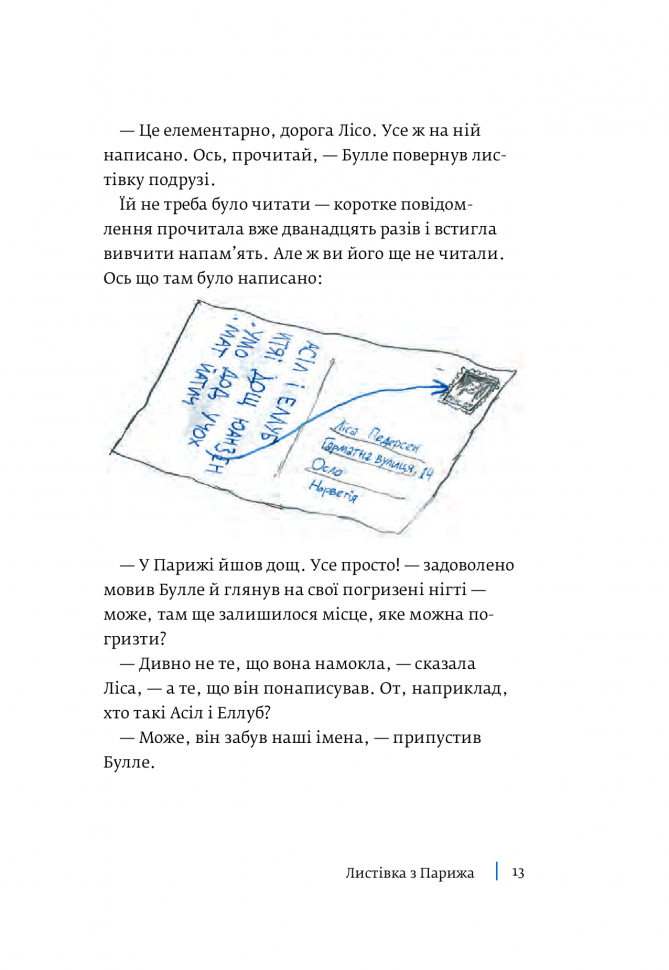 — Це елементарно, дорога Лісо. Усе ж на ній
написано. Ось, прочитай, — Булле повернув лис-
тівку подрузі.
Їй не треба було читати — коротке повідом-
лення прочитала вже дванадцять разів і встигла
вивчити напам’ять. Але ж ви його ще не читали.
Ось що там було написано:
АСІЛ І ЕЛЛУБ
ИТЯІ ДОЩ ЮАНЗЕН
. УМО ДОД УЧОХ
. МАТ ЙАТИЧ
Ліса Педерсен
Гарматна вулиця, 14
Осло
Норвегія
— У Парижі йшов дощ. Усе просто! — задоволено
мовив Булле й глянув на свої погризені нігті —
може, там ще залишилося місце, яке можна по-
гризти?
— Дивно не те, що вона намокла, — сказала
Ліса, — а те, що він понаписував. От, наприклад,
хто такі Асіл і Еллуб?
— Може, він забув наші імена, — припустив
Булле.
Листівка з Парижа | 13